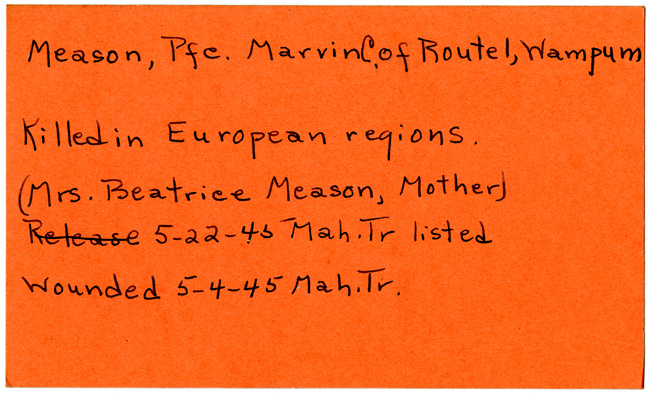 Meason, Pfc. Marvin C. of Route 1, Wampum
Killed in European regions.
(Mrs. Beatrice Meason, Mother)
Release 5-22-45 Mah. Tr listed
Wounded 5-4-45 Mah. Tr.